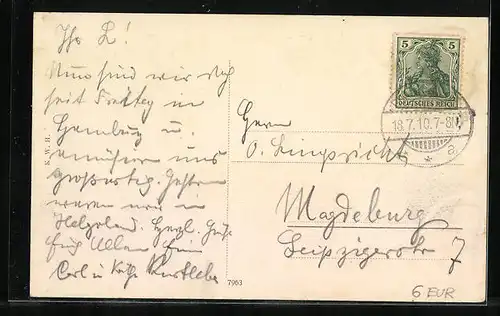 Ihr L!
Nun sind wir doch
seit Freitag in
Hamburg u.
amüsieren uns
großartig. Gestern
waren wir in
Helgoland. Herzl. Grüße
Euch Allen
Carl u. Käthe
K.W.H.
7963
5 5
DEUTSCHES REICH
18.7.10.7-8N.
* a
Herrn
O.
Magdeburg
Leipzigerstr 7
6 EUR